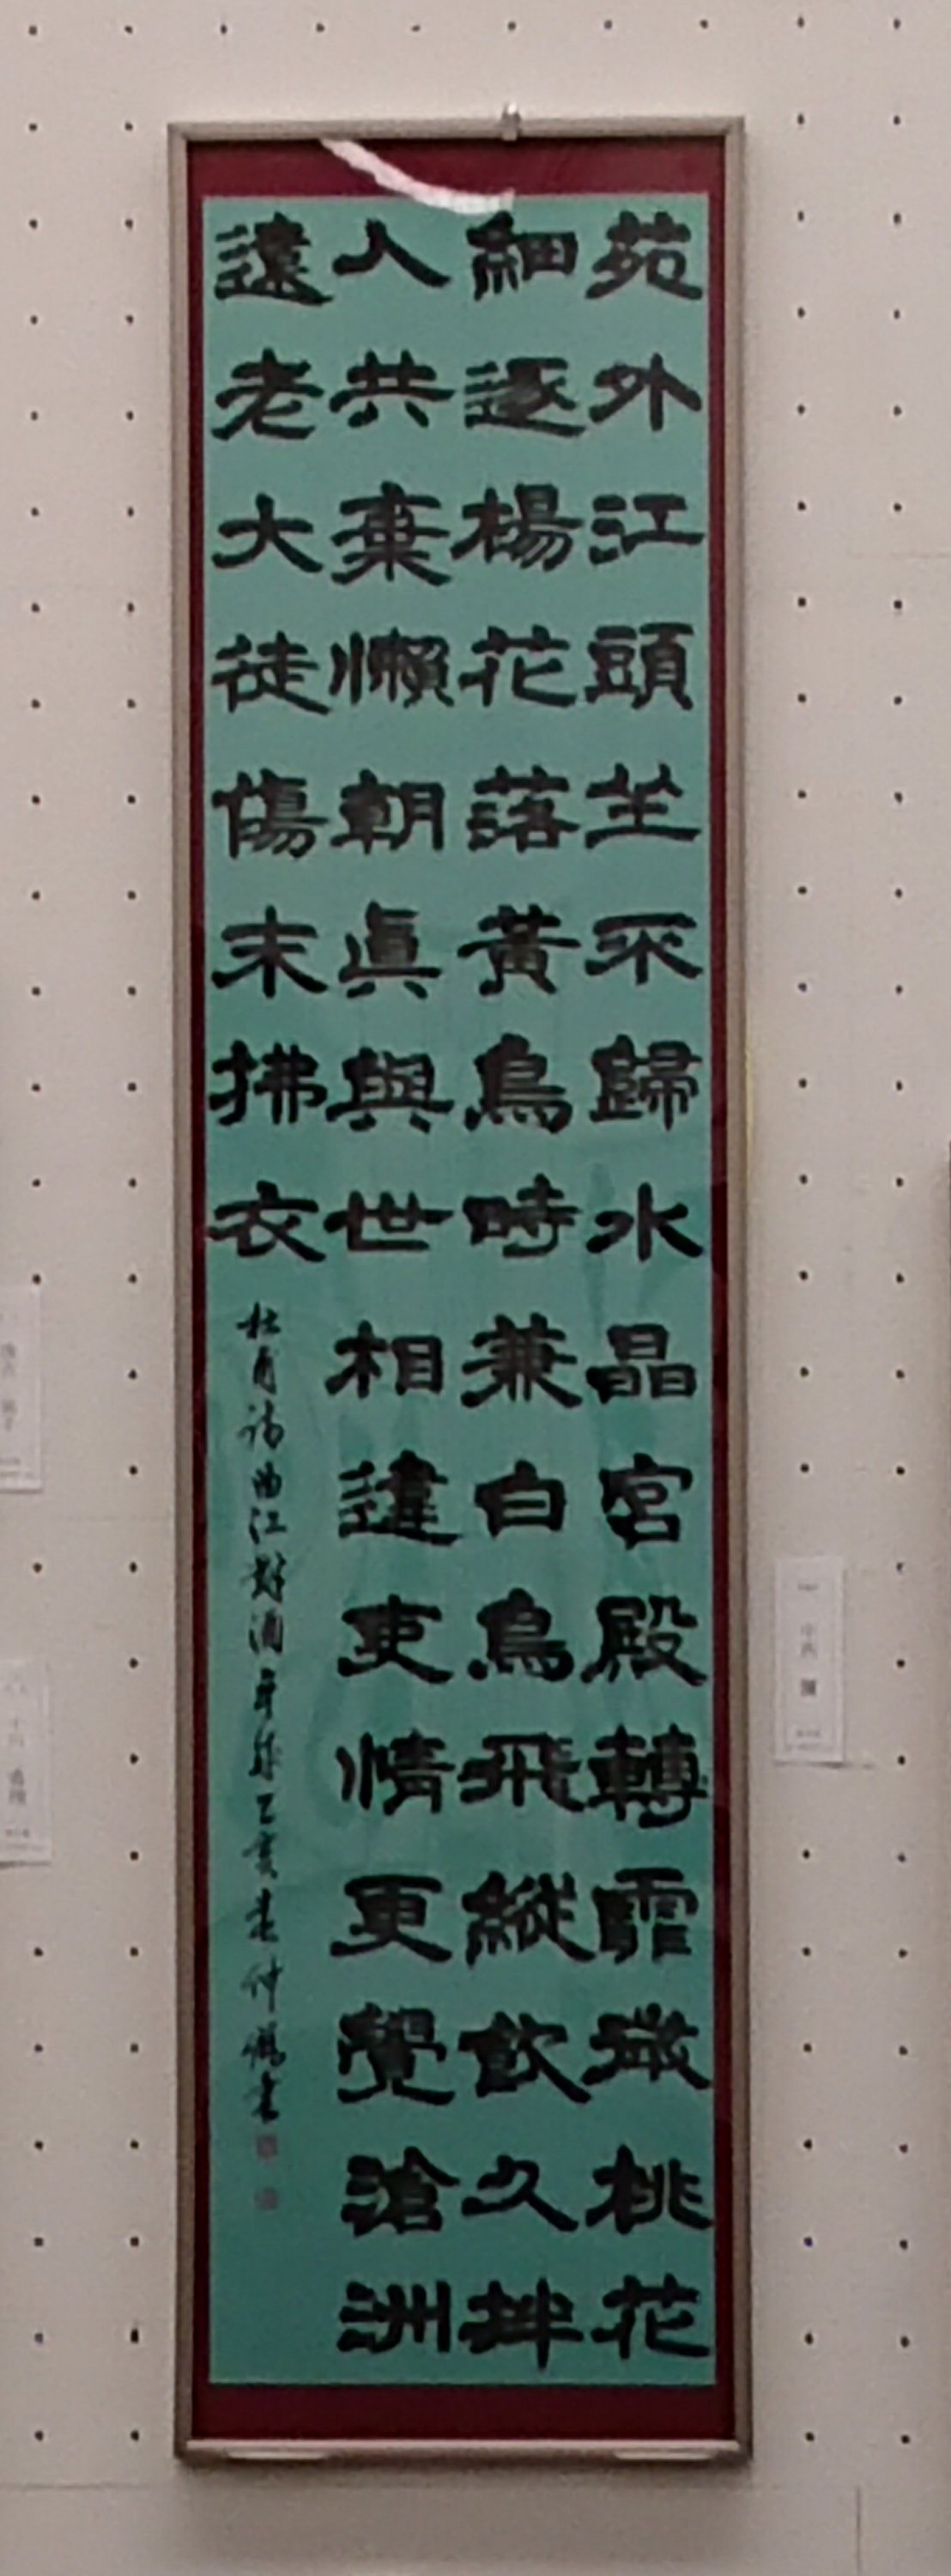 苑外江頭坐不歸水晶宮殿轉霏微桃花
細逐楊花落黃鳥時兼白鳥飛縱飲久拌
人共棄懶朝眞與世相違吏情更覺滄洲
遠老大徒傷末拂衣
杜甫詩曲江對酒 亥春仲 書